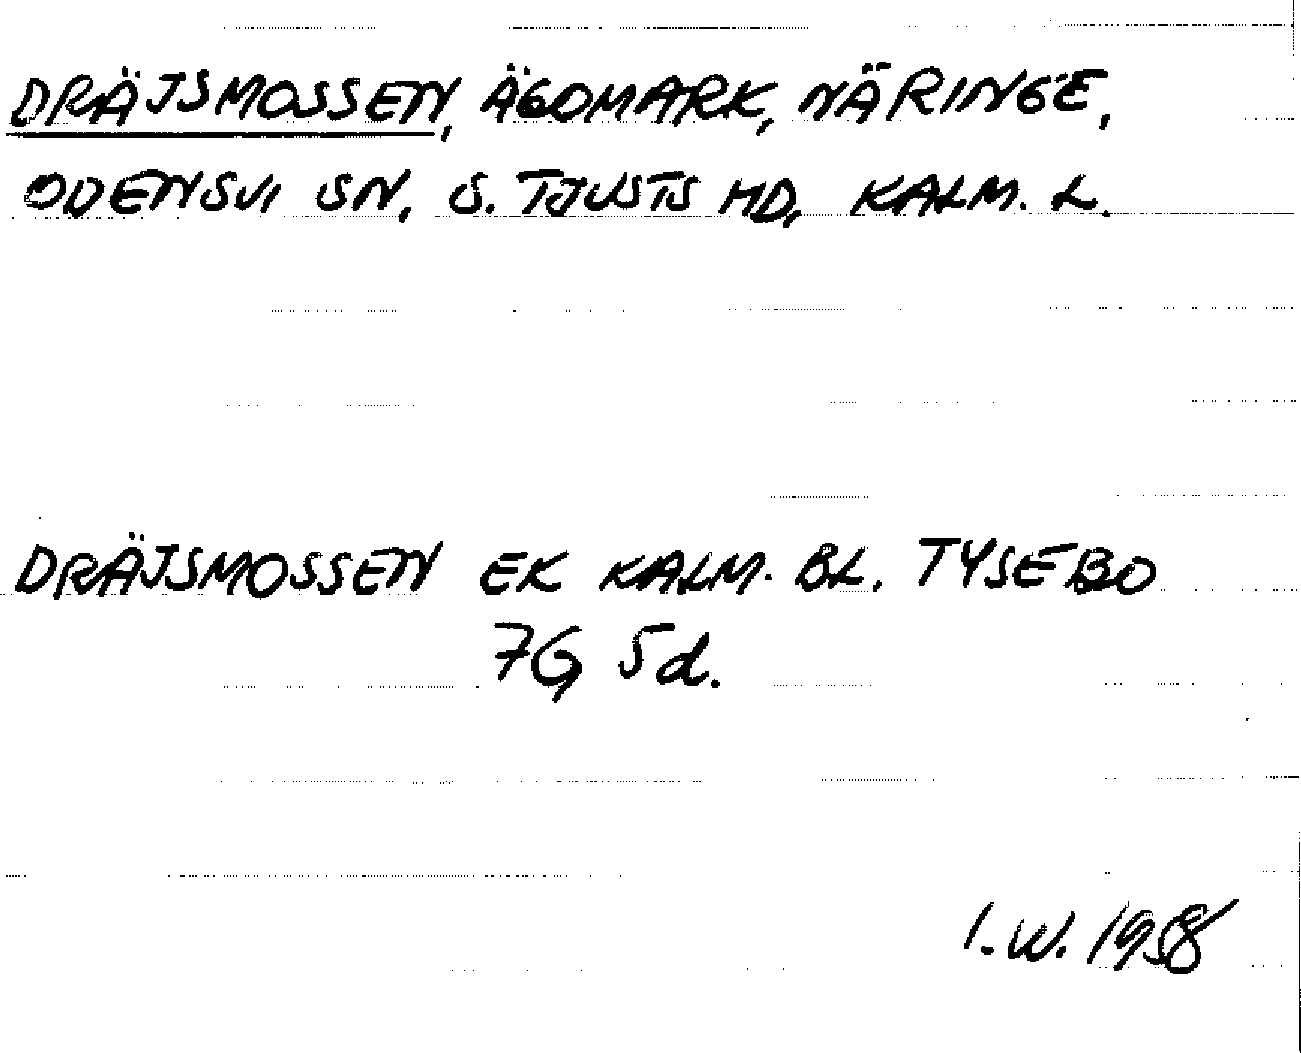 DRÄJSMOSSEN, ÄGOMARK, NÄRINGE,
ODENSVI SN, S. TJUSTS HD, KALM. L.
DRÄJSMOSSEN EK KALM. BL. TYSEBO
7G 5d.
I.W. 1958